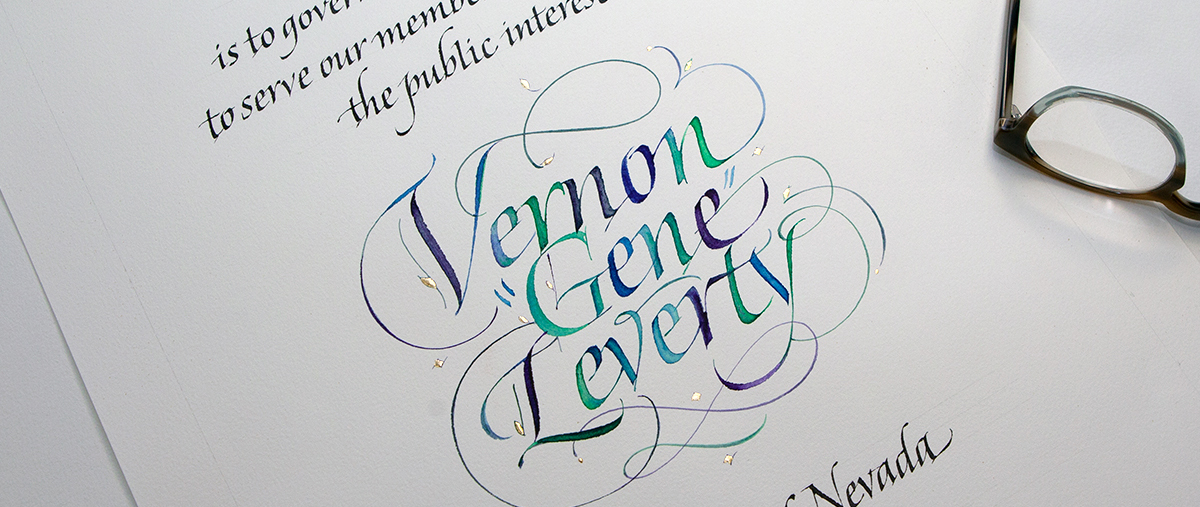 is to govern
to serve our membe
the public interest
Vernon
"Gene"
Leverty
f Nevada